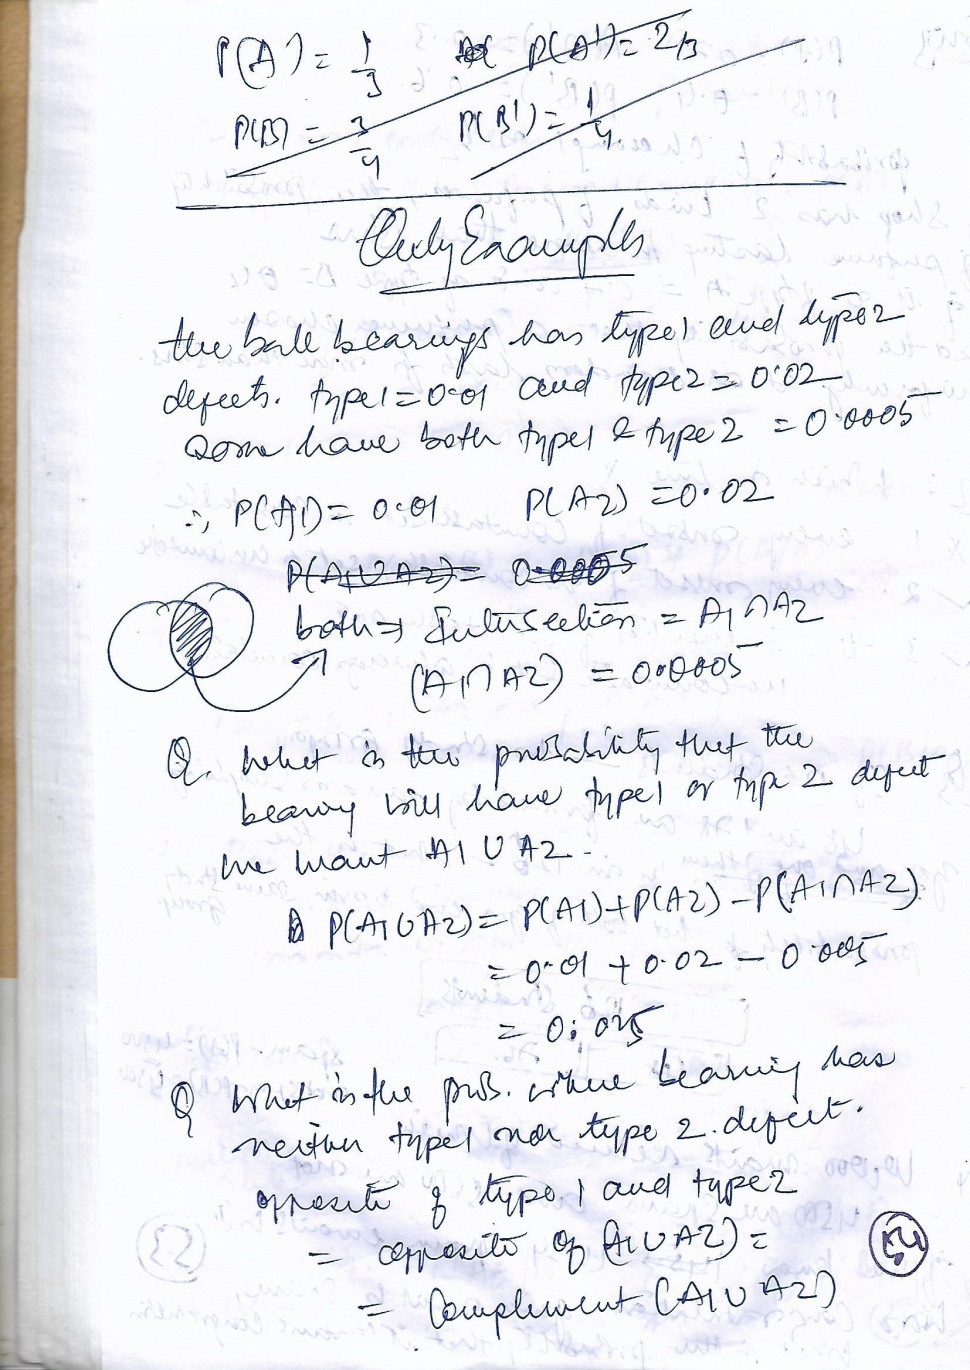 P(A) = 1/3 P(A') = 2/3
P(B) = 3/4 P(B') = 1/4
Only Examples
the ball bearings has type1 and type2
defects. type1=0.01 and type2=0.02
Some have both type1 & type2 = 0.0005
∴ P(A1) = 0.01 P(A2) = 0.02
P(A1∪A2) = 0.0005
both → Intersection = A1∩A2
(A1∩A2) = 0.0005
Q. What is the probability that the
bearing will have type1 or type 2 defect
we want A1 ∪ A2.
P(A1∪A2) = P(A1)+P(A2)-P(A1∩A2)
= 0.01 + 0.02 - 0.005
= 0.025
Q What is the prob. where bearing has
neither type1 nor type 2 defect.
opposite of type 1 and type2
= opposite of (A1∪A2) =
= Complement (A1∪A2)
54